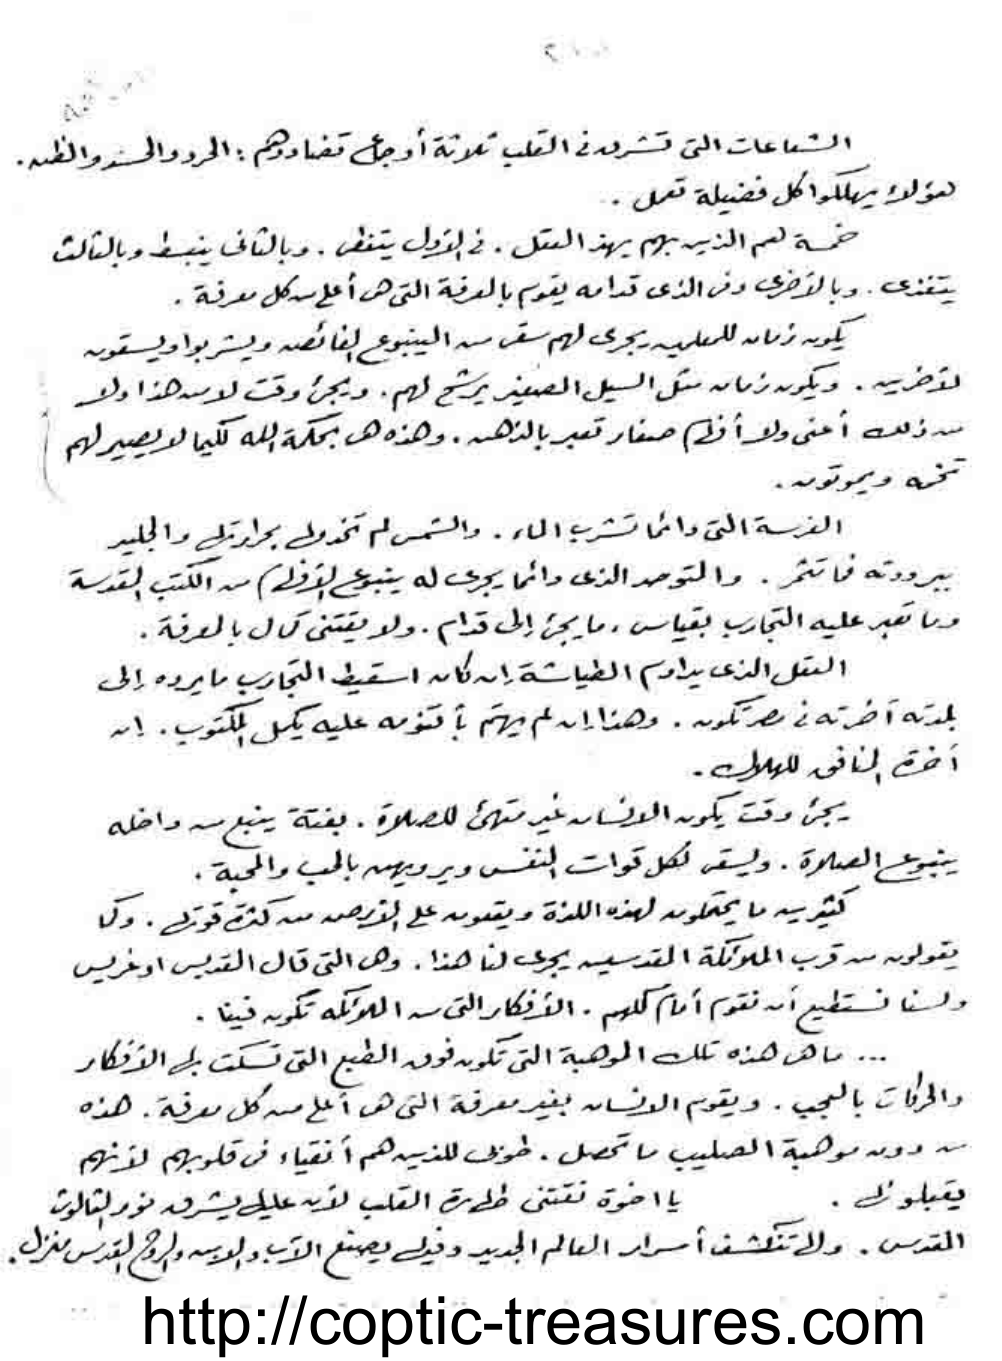 الشعاعات التى تشرق فى القلب ثلاثة أوجاع تضاددهم : الحرد والحسد والظن .
هؤلاء يهلكوا كل فضيلة تعمل .
خمسة هم الذين بهم يهذ العقل . فى الأول يتنقى . وبالثانى ينبسط وبالثالث
يتغذى . وبالأخرى وفى الذى قدامه يقوم بالمعرفة التى هى أعلى من كل معرفة .
يكون زمان للمعلمين يجرى لهم سقى من الينبوع الفائض ويشربوا ويسقون
لآخرين . ويكون زمان مثل السيل الصغير يرشح لهم . ويجئ وقت لا من هذا ولا
من ذلك أعنى ولا أفكار صغار تعبر بالذهن . وهذه هى بحكمة الله لكيما لا يصير لهم
تخمه ويموتون .
الغرسة التى دائما تشرب الماء . والشمس لم تخدمها بحرارتها والجليد
ببرودته فما تثمر . والمتوحد الذى دائما يجرى له ينبوع الأفكار من الكتب المقدسة
وما تعبر عليه التجارب بقياس ، ما يجئ إلى قدام . ولا يقتنى كمال بالمعرفة .
العقل الذى يداوم الطياشة إن كان استقيظ التجارب ما يرده إلى
بلدته آخرته فى مصر تكون . وهذا إن لم يهتم بأ عليه يكمل المكتوب . إن
أخرة المنافق للهلاك .
يجئ وقت يكون الإنسان غير متهئ للصلاة . بغتة ينبع من داخله
ينبوع الصلاة . ويسقى لكل قوات النفس ويرويهن بالحب والمحبة .
كثيرين ما يحتملون لهذه اللذة ويقعون على الأرض من كثرة قوتها . وكما
يقولون من قرب الملائكة القديسين يجرى لنا هذا . وهى التى قال القديس اوغريس
ولسنا نستطيع أن نقوم أمام كلهم . الأفكار التى من الملائكه تكون فينا .
... ما هى هذه تلك الموهبة التى تكون فوق الطبع التى تسكت بها الأفكار
والحركات بالعجب . ويقوم الإنسان بغير معرفة التى هى أعلى من كل معرفة . هذه
من دون موهبة الصليب ما تحصل . طوبى للذين هم أنقياء فى قلوبهم لأنهم
يقبلونها . يا اخوة نقتنى طهارة القلب لأن عليها يشرق نور الثالوث
المقدس . ولها تنكشف أسرار العالم الجديد وفيها يصنع الآب والابن والروح القدس منزل .
http://coptic-treasures.com